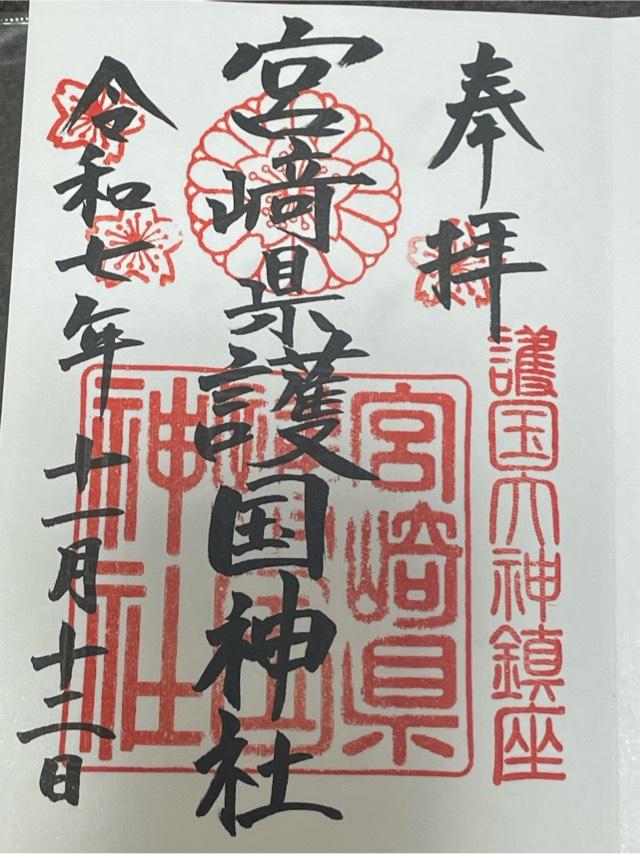 奉拝
護国大神鎮座
宮﨑県護国神社
宮崎県
護国
神社
令和七年十一月十二日